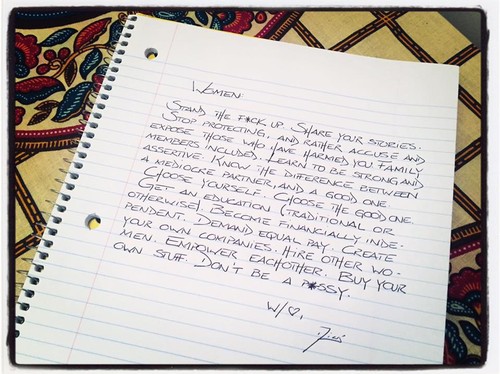 WOMEN:
STAND THE F*CK UP. SHARE YOUR STORIES.
STOP PROTECTING, AND RATHER ACCUSE AND
EXPOSE THOSE WHO HAVE HARMED YOU. FAMILY
MEMBERS INCLUDED. LEARN TO BE STRONG AND
ASSERTIVE. KNOW THE DIFFERENCE BETWEEN
A MEDIOCRE PARTNER, AND A GOOD ONE.
CHOOSE YOURSELF. CHOOSE THE GOOD ONE.
GET AN EDUCATION (TRADITIONAL OR
OTHERWISE). BECOME FINANCIALLY INDE-
PENDENT. DEMAND EQUAL PAY. CREATE
YOUR OWN COMPANIES. HIRE OTHER WO-
MEN. EMPOWER EACHOTHER. BUY YOUR
OWN STUFF. DON'T BE A P*SSY.
W/♡,